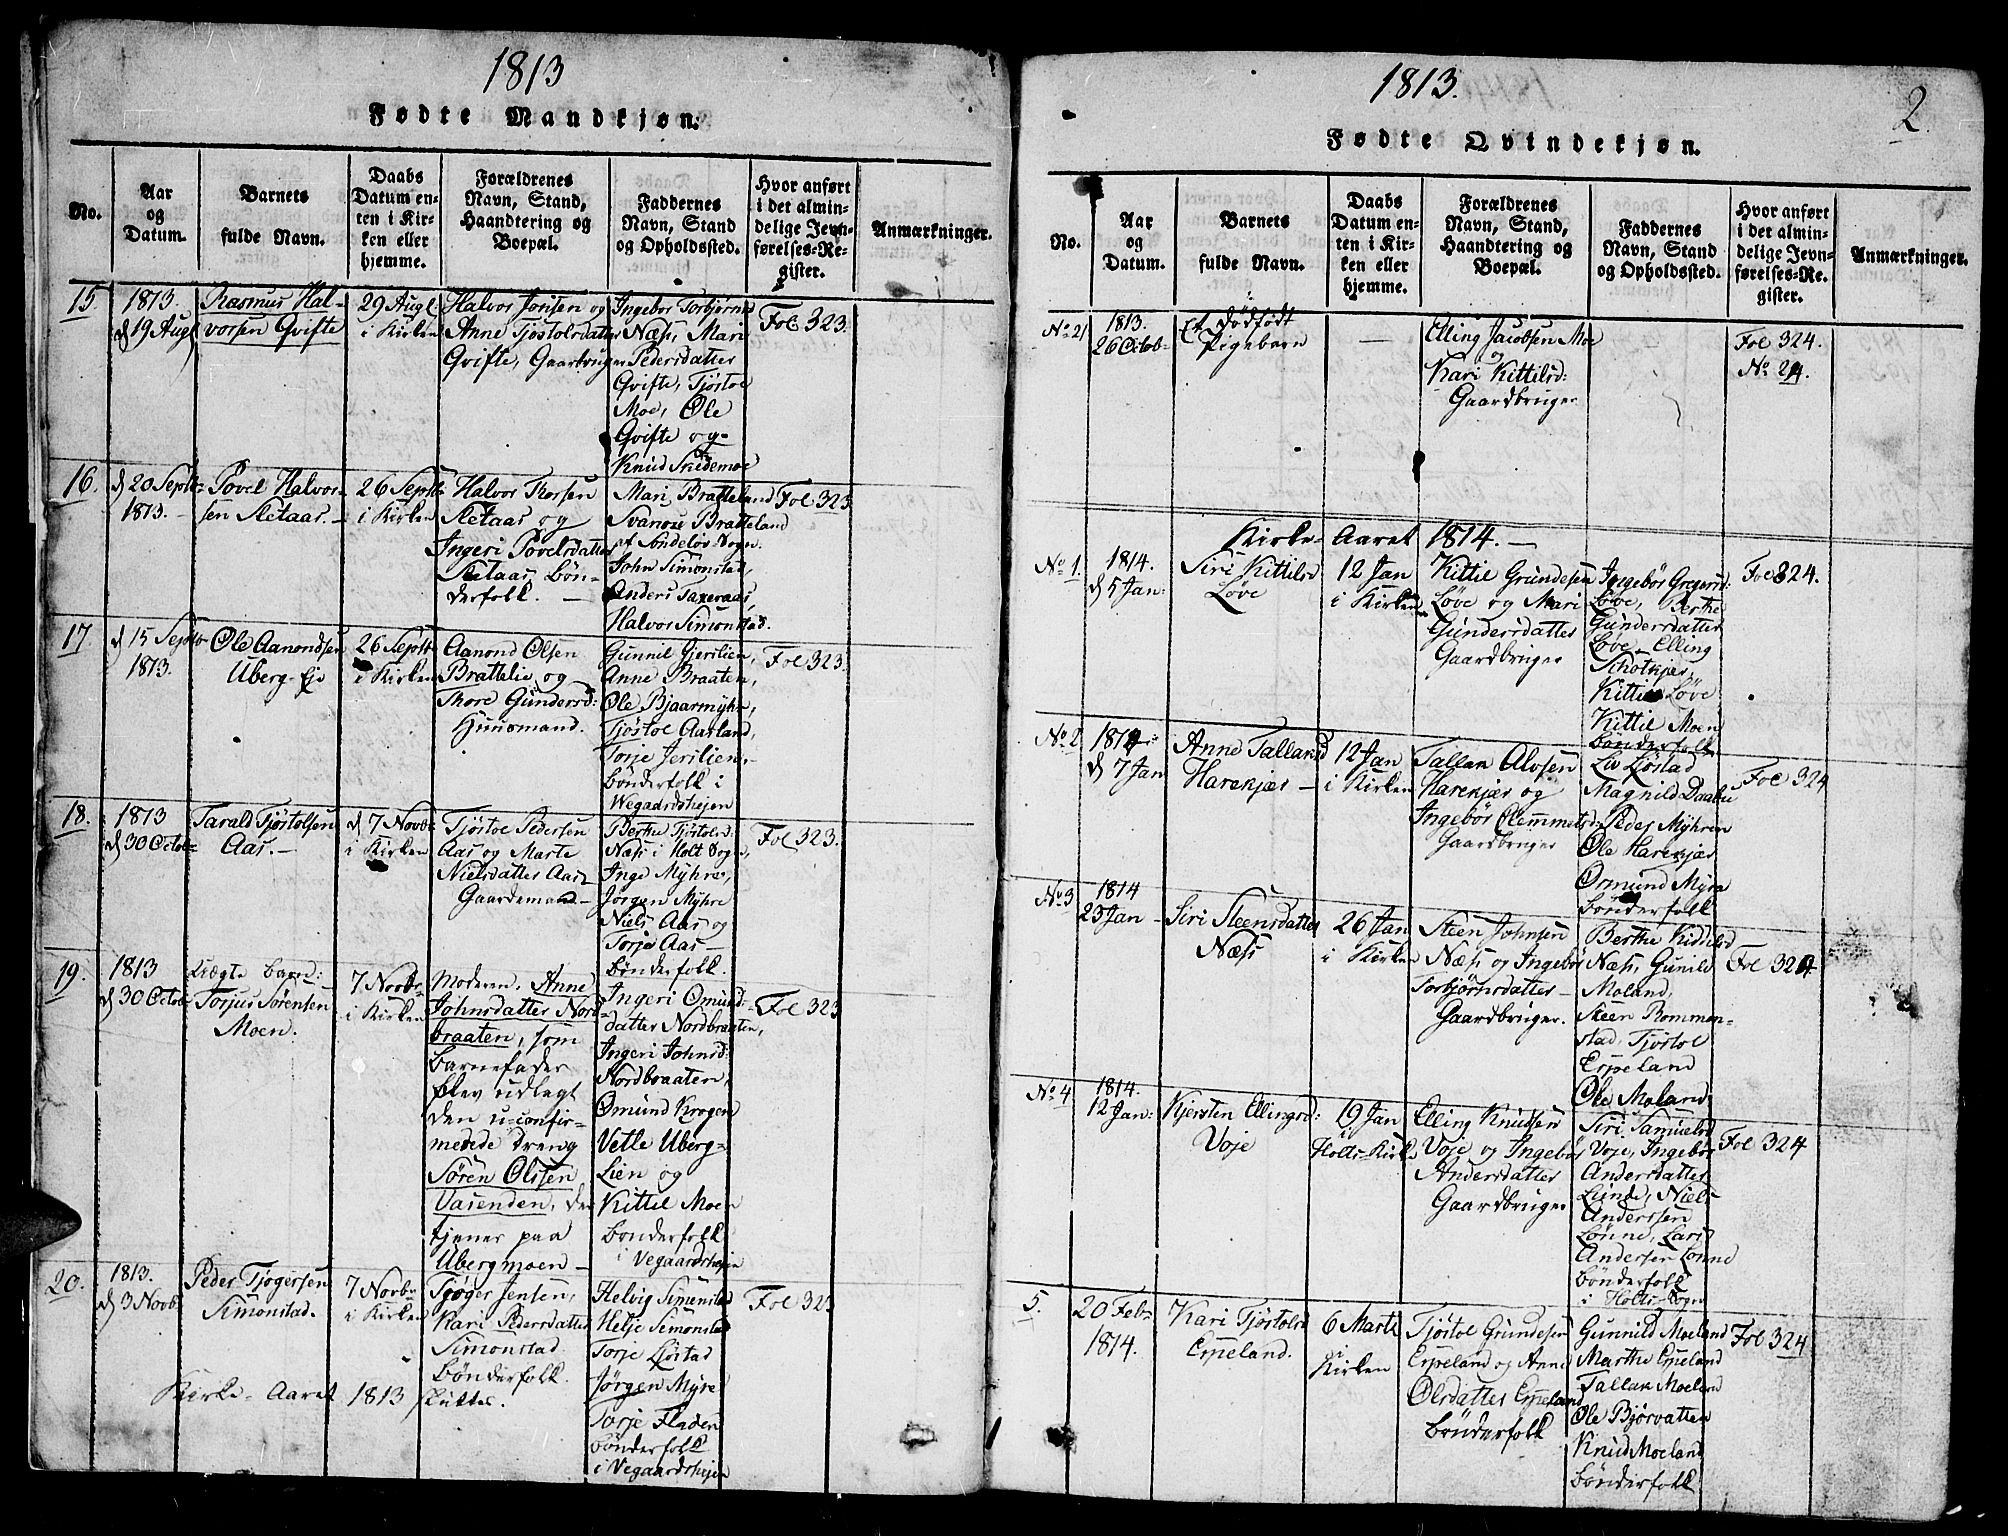 1813
Fødte Mandkjøn.
No.
Aar
og
Datum.
Barnets
fulde Navn.
Daabs
Datum en-
ten i Kir-
ken eller
hjemme.
Forældrenes
Navn, Stand,
Haandtering og
Boepæl.
Faddernes
Navn, Stand
og Opholdssted.
Hvor anført
i det almin-
delige Jevn-
førelses-Re-
gister.
Anmærkninger.
15.
1813.
d 19 Augl
Rasmus Hal-
vorsen Qvifte
29 Augl
i Kirken
Halvor Jonsen og
Anne Tjøstolsdatter
Qvifte, Gaardbruger
Ingebor Torbjørns
Næss, Mari
Pedersdatter
Qvifte, Tjøstol
Moe, Ole
Qvifte og
Knud Skidemoe
Fol 323.
16.
d 20 Septb
1813.
Povel Halvor-
sen Sletaas.
26 Septb
i Kirken
Halvor Thorsen
Sletaas og
Ingeri Povelsdatter
Sletaas, Bøn-
derfolk.
Mari Bratteland
Svanose Bratteland
af Søndeløv Sogn.
John Simonstad,
Anders Taxeraas,
Halvor Simonstad.
Fol 323.
17.
d 15 Septb
1813.
Ole Aanondsen
Uberg-Eje
26 Septb
i Kirken
Aanond Olsen
Brattelie og
Thore Gundersd:
Huusmand.
Gunnil Gjerilien,
Anne Braaten,
Ole Bjaarmyhr,
Tjøstol Aasland,
Torje Jerilien,
bønderfolk i
Wegaardshejen
Fol 323.
18.
1813
d 30 Octob
Tarald Tjøstolsen
Aas.
d 7 Novb
i Kirken
Tjøstol Pedersen
Aas og Marte
Nielsdatter Aas
Gaardemand
Berthe Tjøstolsd:
Næss i Holt Sogn,
Inge Myhre,
Jørgen Myhre
Niels Aas og
Torje Aas
bønderfolk.
Fol 323.
19.
1813
d 30 Octob
Uægte barn:
Torjus Sørensen
Moen.
7 Novb
i Kirken
Moderen, Anne
Johnsdatter Nord-
braaten, som
barnefader
blev udlagt
den u-confir-
merede dreng
Søren Olsen
Vasenden, der
tjener paa
Ubergmoen
Ingeri Omund-
datter Nordbraaten,
Ingeri Johnsd:
Nordbraaten,
Omund Krogen
Vetle Uberg-
Lien og
Kittil Moen
bønderfolk
i Vegaardshejen
Fol 323
20.
1813.
d 3 Novb
Peder Tjøgersen
Simonstad.
7 Novb
i Kirken
Tjøger Jensen,
Kari Pedersdatter
Simonstad.
bønderfolk.
Helvig Simonstad
Helje Simonstad
Torje Ljøstad
Jørgen Myre
Torje Fladen
bønderfolk
i Vegaardshejen
Fol 323
Kirke-Aaret 1813 slutter.
1813.
2.
Fødte Qvindekjøn.
No.
Aar
og
Datum.
Barnets
fulde Navn.
Daabs
Datum en-
ten i Kir-
ken eller
hjemme.
Forældrenes
Navn, Stand,
Haandtering og
Boepæl.
Faddernes
Navn, Stand
og Opholdssted.
Hvor anført
i det almin-
delige Jevn-
førelses-Re-
gister.
Anmærkninger.
No 21
1813.
26 Octob
Et dødfødt
Pigebarn
—
Elling Jacobsen Moe
og
Kari Kittilsd:
Gaardbruger
Fol 324.
No 21.
Kirke-Aaret 1814.
No 1.
1814.
d 5 Jan:
Siri Kittilsd
Løve
12 Jan
i Kirken
Kittil Grundesen
Løve og Mari
Gundersdatter
Gaardbruger
Ingebor Gregersd:
Løve, Berthe
Gundersdatter
Løve, Elling
Skotkjær,
Kittil Løve
Kittil Moen
bønderfolk
Fol 324.
No 2
1814:
d 7 Jan
Anne Tallaksd
Harekjær
12 Jan
i Kirken
Tallak Alvsen
Harekjær og
Ingebør Clemmetsd:
Gaardbruger
Liv Ljøstad
Magnild Daabu
Peder Myhren
Ole Harekjær
Ormund Myra
bønderfolk
Fol 324
No 3
1814
23 Jan
Siri Steensdatter
Næss
26 Jan
i Kirken
Steen Johnsen
Næss og Ingebør
Torbjørnsdatter
Gaardbruger.
Berthe Kiddelsd
Næss, Gunild
Moland,
Steen Rommen-
stad, Tjøstol
Espeland
Ole Moland
Fol 324
No 4
1814.
12 Jan:
Kjersten Ellingsd:
Voje
19 Jan
i
Holts-Kirke
Elling Knudsen
Voje og Ingebør
Andersdatter
Gaardbruger
Siri Samuelsd
Voje, Ingebør
Andersdatter
Lunde, Niels
Anderssen
Lønne, Lars
Andersen Lønne
bønderfolk
i Holts-Sogn
Fol 324
5.
20 Feb
1814.
Kari Tjøstolsd
Espeland.
6 Marti
i
Kirken
Tjøstol Grundesen
Espeland og Anne
Olsdatter Espeland
bønderfolk
Gunnild Moeland
Marthe Espeland
Tallak Moeland
Ole Bjørvatten
Knud Moeland
bønderfolk
Fol 324